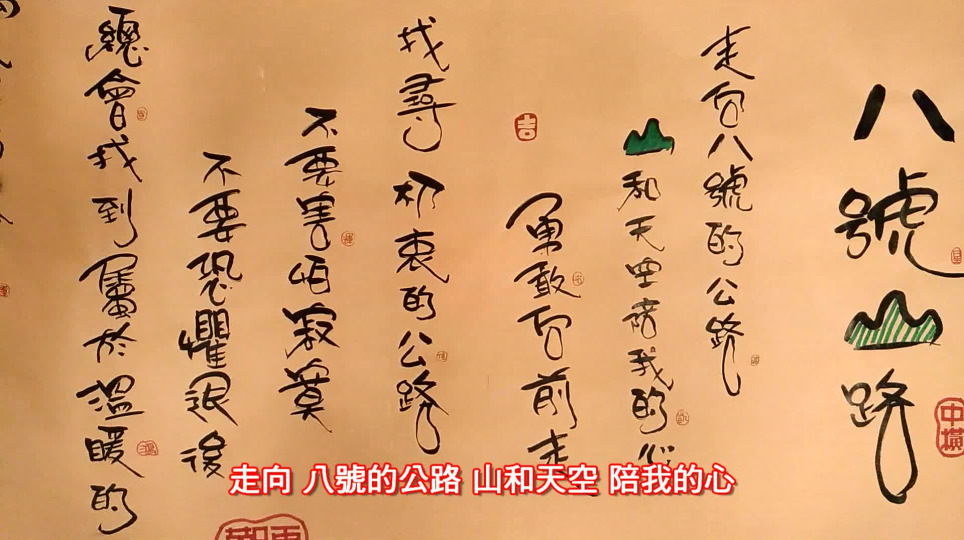 八號山路
中橫
走向八號的公路
山和天空陪我的心
吉
勇敢向前走
找尋初衷的公路
不要害怕寂寞
不要恐懼退後
總會找到屬於溫暖的
走向 八號的公路 山和天空 陪我的心